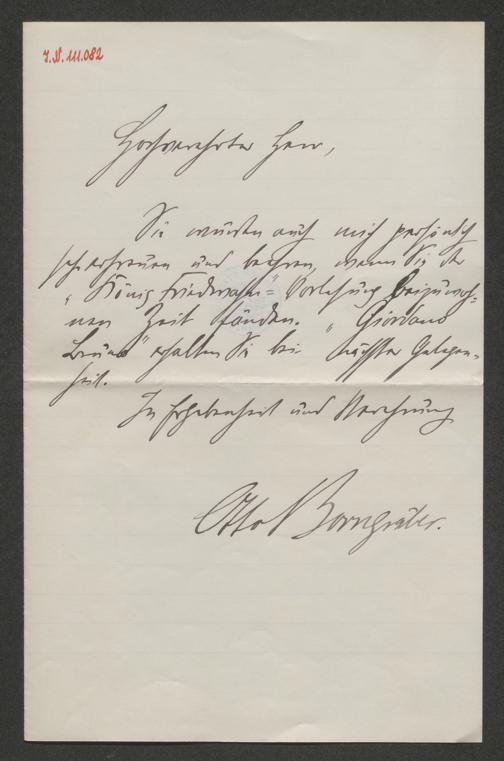 J.N. 111.082
Hochverehrter Herr,
Sie würden auch mich persönlich
sehr erfreuen und beehren, wenn Sie der
„König Friedwahn“=Vorlesung beizuwoh=
nen Zeit fänden. „Giordano
Bruno“ erhalten Sie bei nächster Gelegen=
heit.
In Ergebenheit und Verehrung
Otto Borngräber.